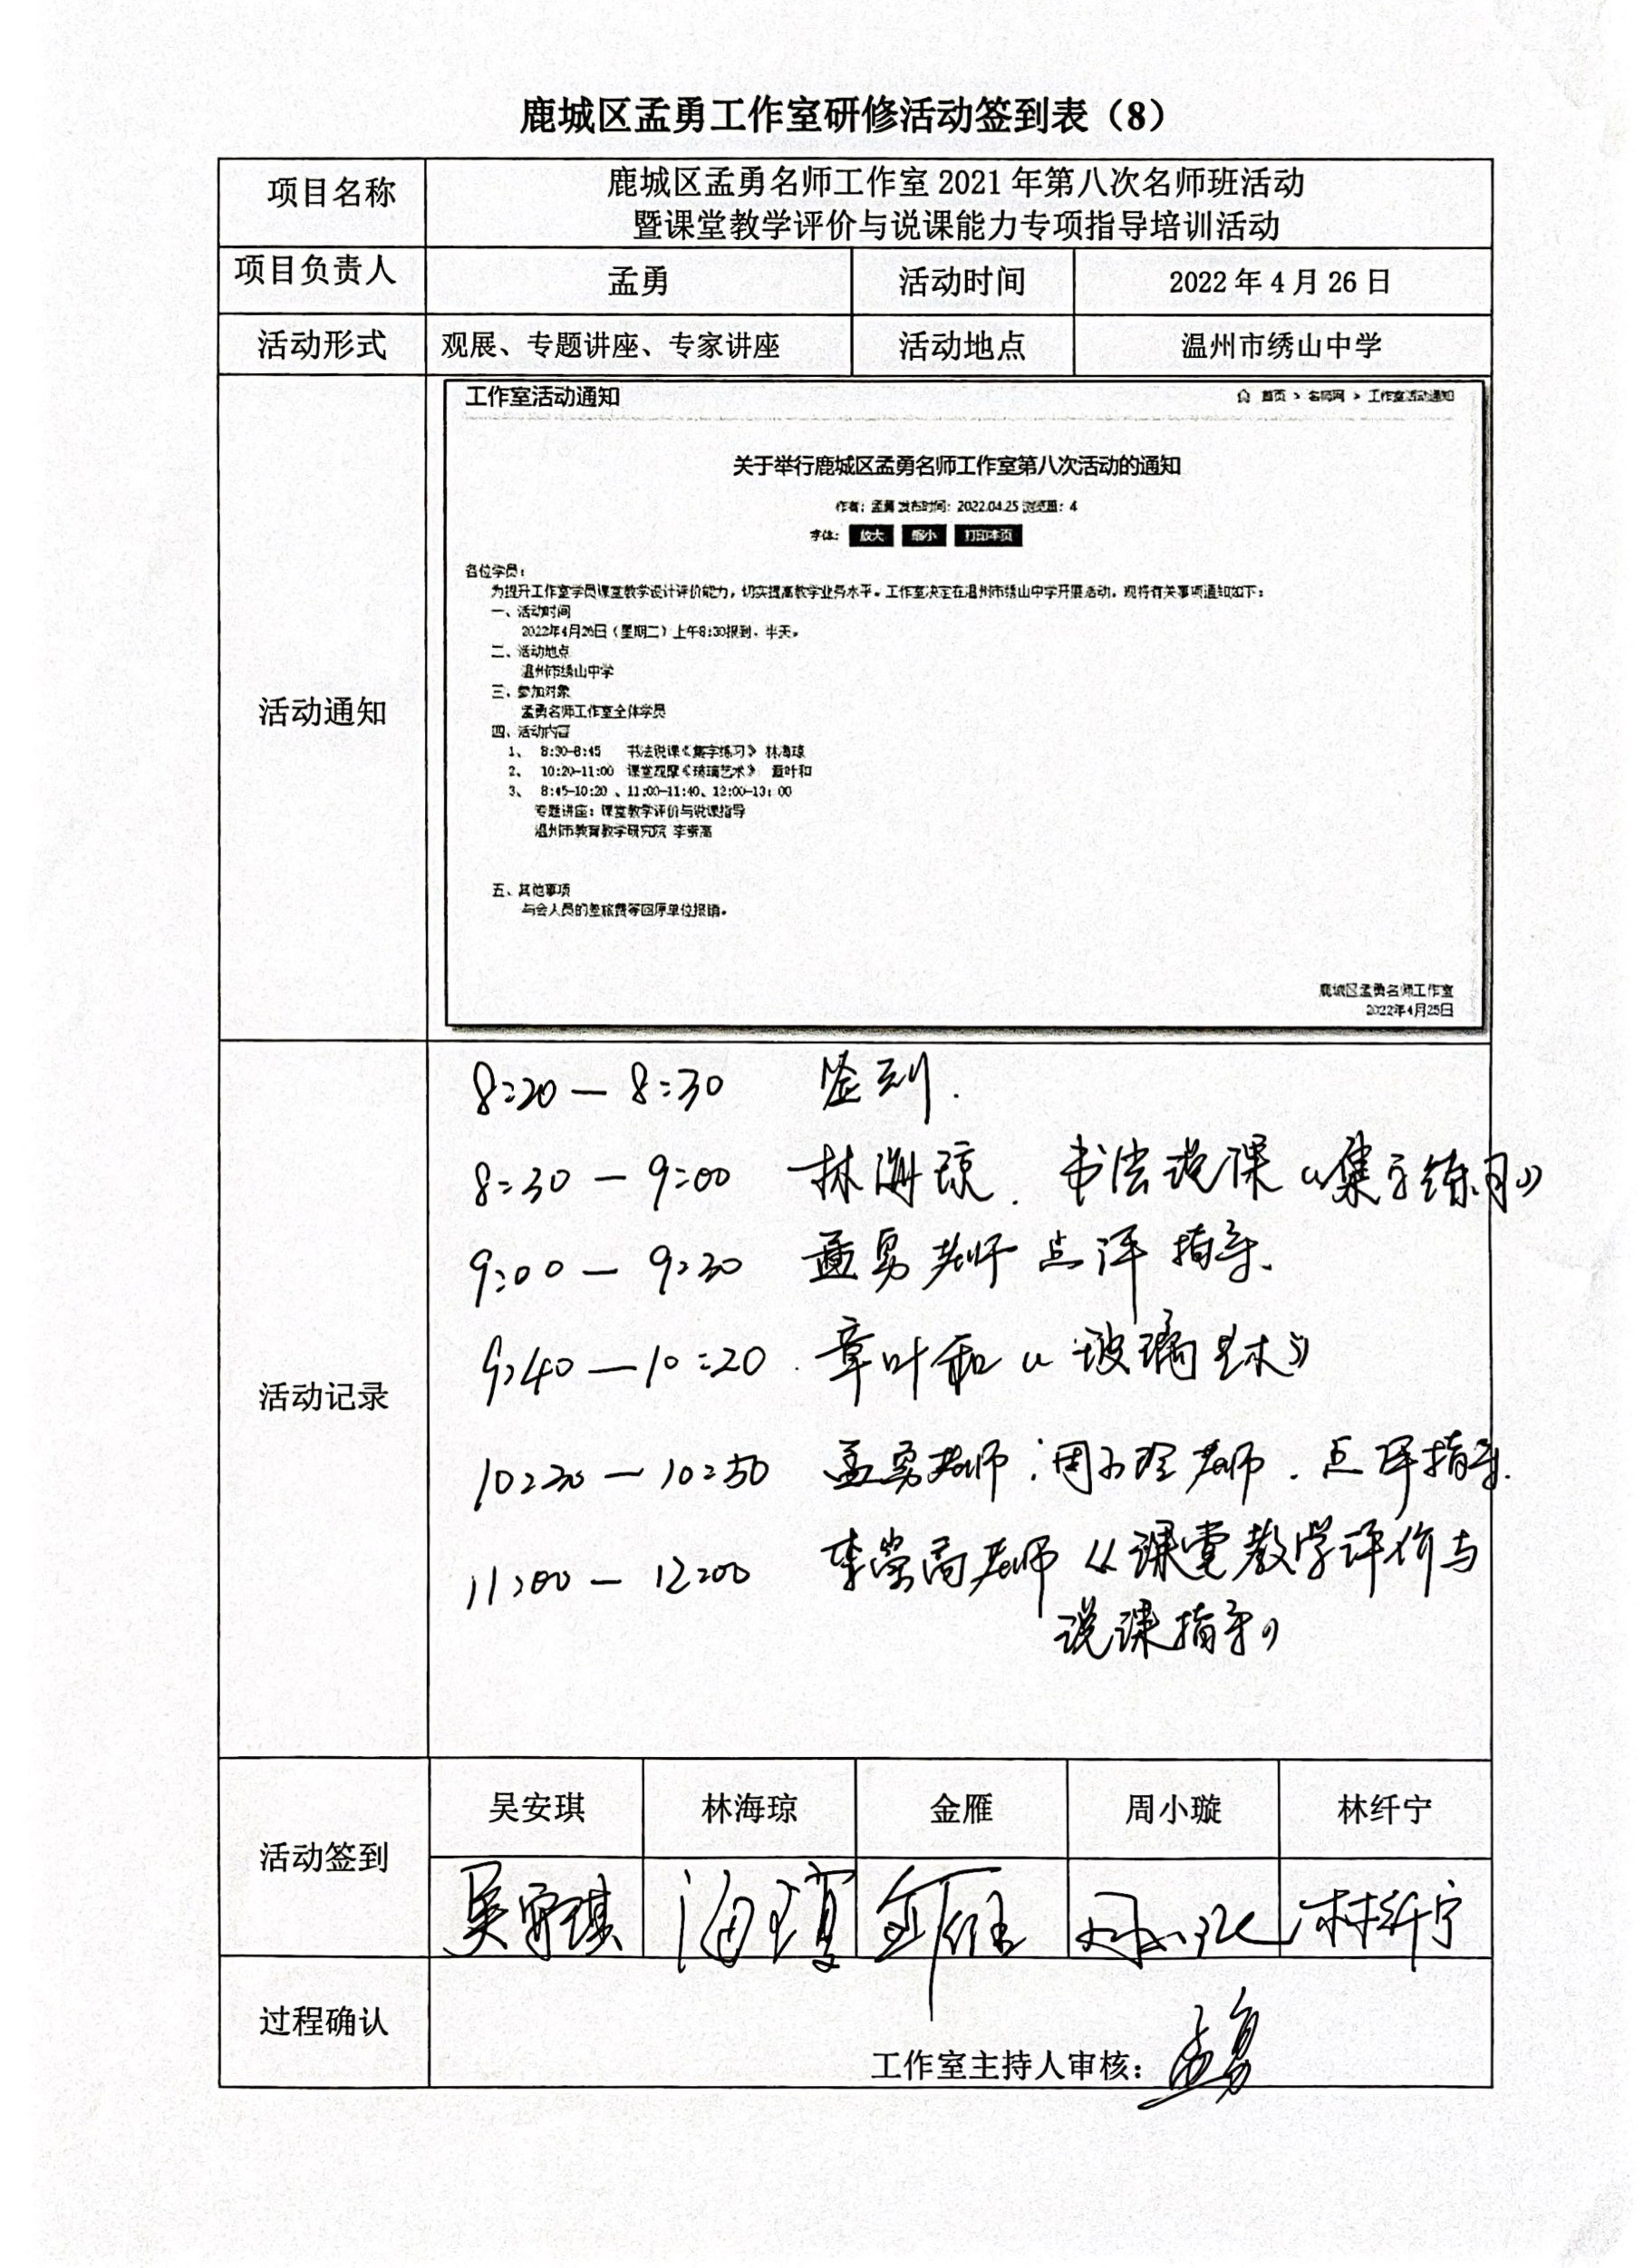 鹿城区孟勇工作室研修活动签到表（8）
项目名称
鹿城区孟勇名师工作室 2021 年第八次名师班活动
暨课堂教学评价与说课能力专项指导培训活动
项目负责人
孟勇
活动时间
2022 年 4 月 26 日
活动形式
观展、专题讲座、专家讲座
活动地点
温州市绣山中学
活动通知
工作室活动通知
首页 > 名师网 > 工作室活动通知
关于举行鹿城区孟勇名师工作室第八次活动的通知
作者：孟勇 发布时间：2022.04.25 浏览量：4
字体： 放大 缩小 打印本页
各位学员：
为提升工作室学员课堂教学设计评价能力，切实提高教学业务水平。工作室决定在温州市绣山中学开展活动，现将有关事项通知如下：
一、活动时间
2022年4月26日（星期二）上午8:30报到，半天。
二、活动地点
温州市绣山中学
三、参加对象
孟勇名师工作室全体学员
四、活动内容
1、 8:30-8:45 书法说课《集字练习》 林海琼
2、 10:20-11:00 课堂观摩《玻璃艺术》 章叶和
3、 8:45-10:20 、11:00-11:40、12:00-13：00
专题讲座：课堂教学评价与说课指导
温州市教育教学研究院 李崇高
五、其他事项
与会人员的差旅费等回原单位报销。
鹿城区孟勇名师工作室
2022年4月25日
活动记录
8:20 — 8:30 签到.
8:30 — 9:00 林海琼. 书法说课《集字练习》
9:00 — 9:30 孟勇老师 点评 指导.
9:40 — 10:20 . 章叶和《玻璃艺术》
— 10:50 孟勇老师；周小璇老师. 点评指导.
11:00 — 12:00 李崇高老师《课堂教学评价与
说课指导》
活动签到
吴安琪 林海琼 金雁 周小璇 林纤宁
吴安琪 海琼 金雁 周小璇 林纤宁
过程确认
工作室主持人审核：孟勇